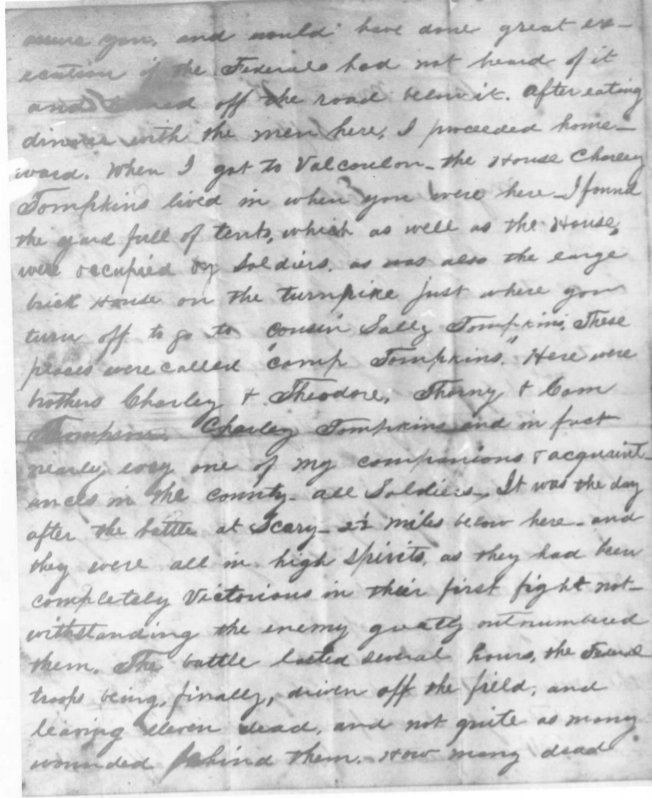 assure you, and would have done great ex-
ecution if the Federals had not heard of it
and turned off the road below it. After eating
dinner with the men here, I proceeded home-
ward. When I got to Valcoulon - the House Charley
Tompkins lived in when you were here - I found
the yard full of tents, which as well as the House,
were occupied by Soldiers, as was also the large
brick House on the turnpike just where you
turn off to go to "cousin" Sally Tompkins, These
places were called "camp Tompkins." Here were
brothers Charley & Theodore, Thorny & Cam
Thompson, Charley Tompkins and in fact
nearly every one of my companions & acquaint-
ances in the county - all Soldiers, It was the day
after the battle at Scary - 2½ miles below here - and
they were all in high spirits, as they had been
completely Victorious in their first fight not-
withstanding the enemy greatly outnumbered
them. The battle lasted several hours, the Federal
troops being, finally, driven off the field, and
leaving eleven dead, and not quite as many
wounded behind them. How many dead